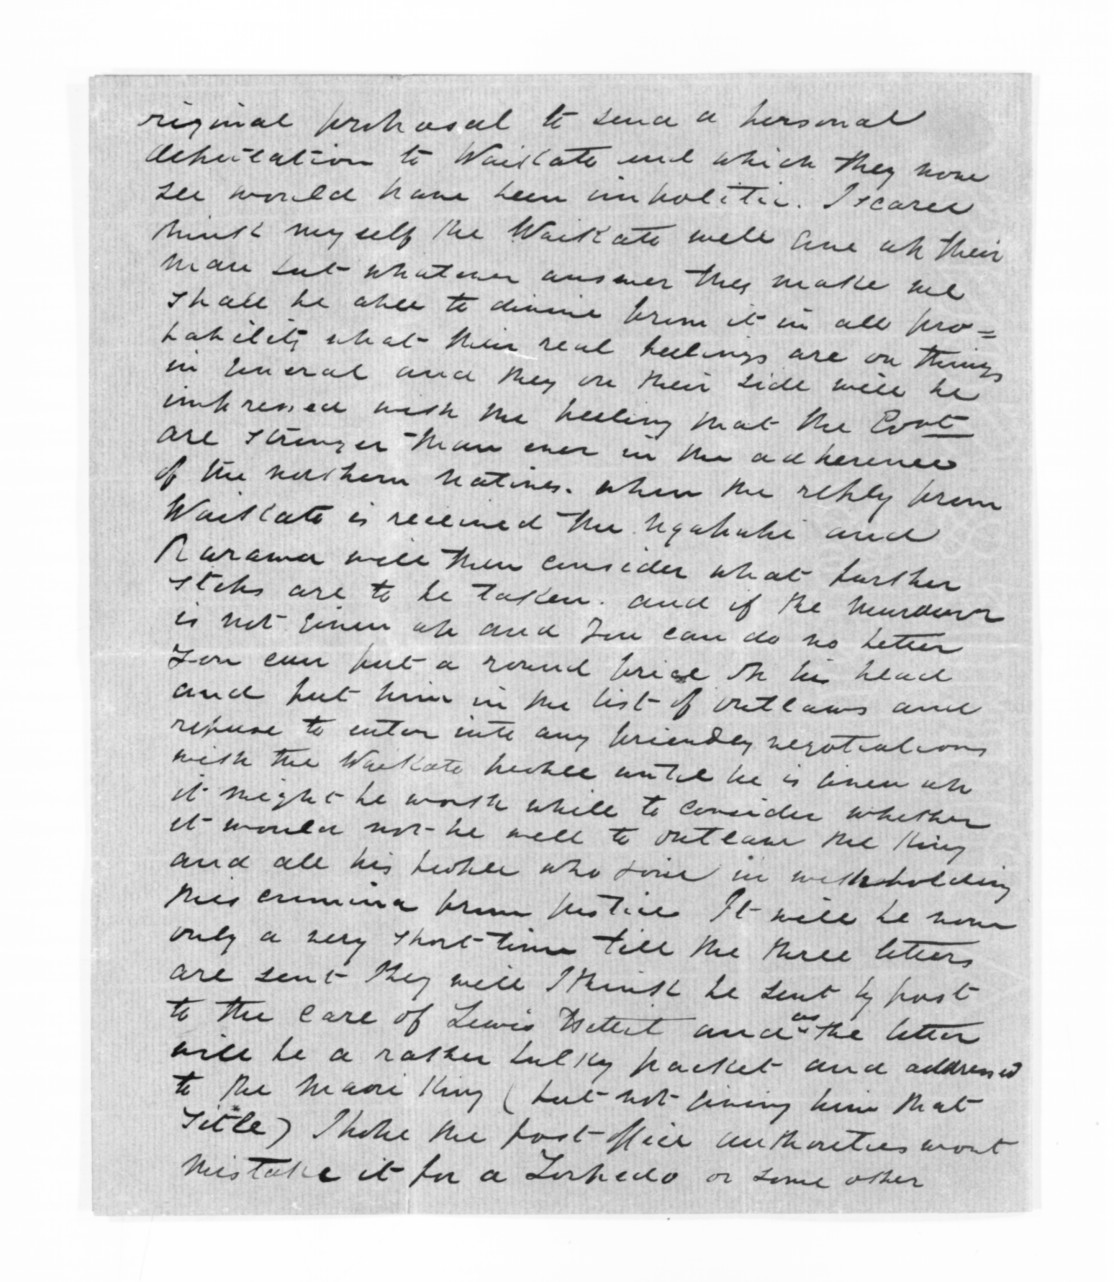 riginal proposal to send a personal
deputation to Waikato and which they now
see would have been impolitic. I scarce
think myself the Waikato will give up their
man but whatever answer they make we
shall be able to divine from it in all pro=
bability what their real feelings are on things
in general and they on their side will be
impressed with the feeling that the Govt
are stronger than ever in the adherence
of the northern natives. when the reply from
Waikato is received the Ngapuhi and
Rarawa will then consider what further
steps are to be taken. and if the murderer
is not given up and you can do no better
you can put a round price on his head
and put him in the list of outlaws and
refuse to enter into any friendly negotiations
with the Waikato people until he is given up
it might be worth while to consider whether
it would not be well to outlaw the King
and all his people who join in withholding
this criminal from justice It will be now
only a very short time till the three letters
are sent they will I think be sent by post
to the care of Lewis and as the letter
will be a rather bulky packet and addressed
to the Maori King (but not giving him that
title) I hope the post office authorities wont
mistake it for a Torpedo or some other